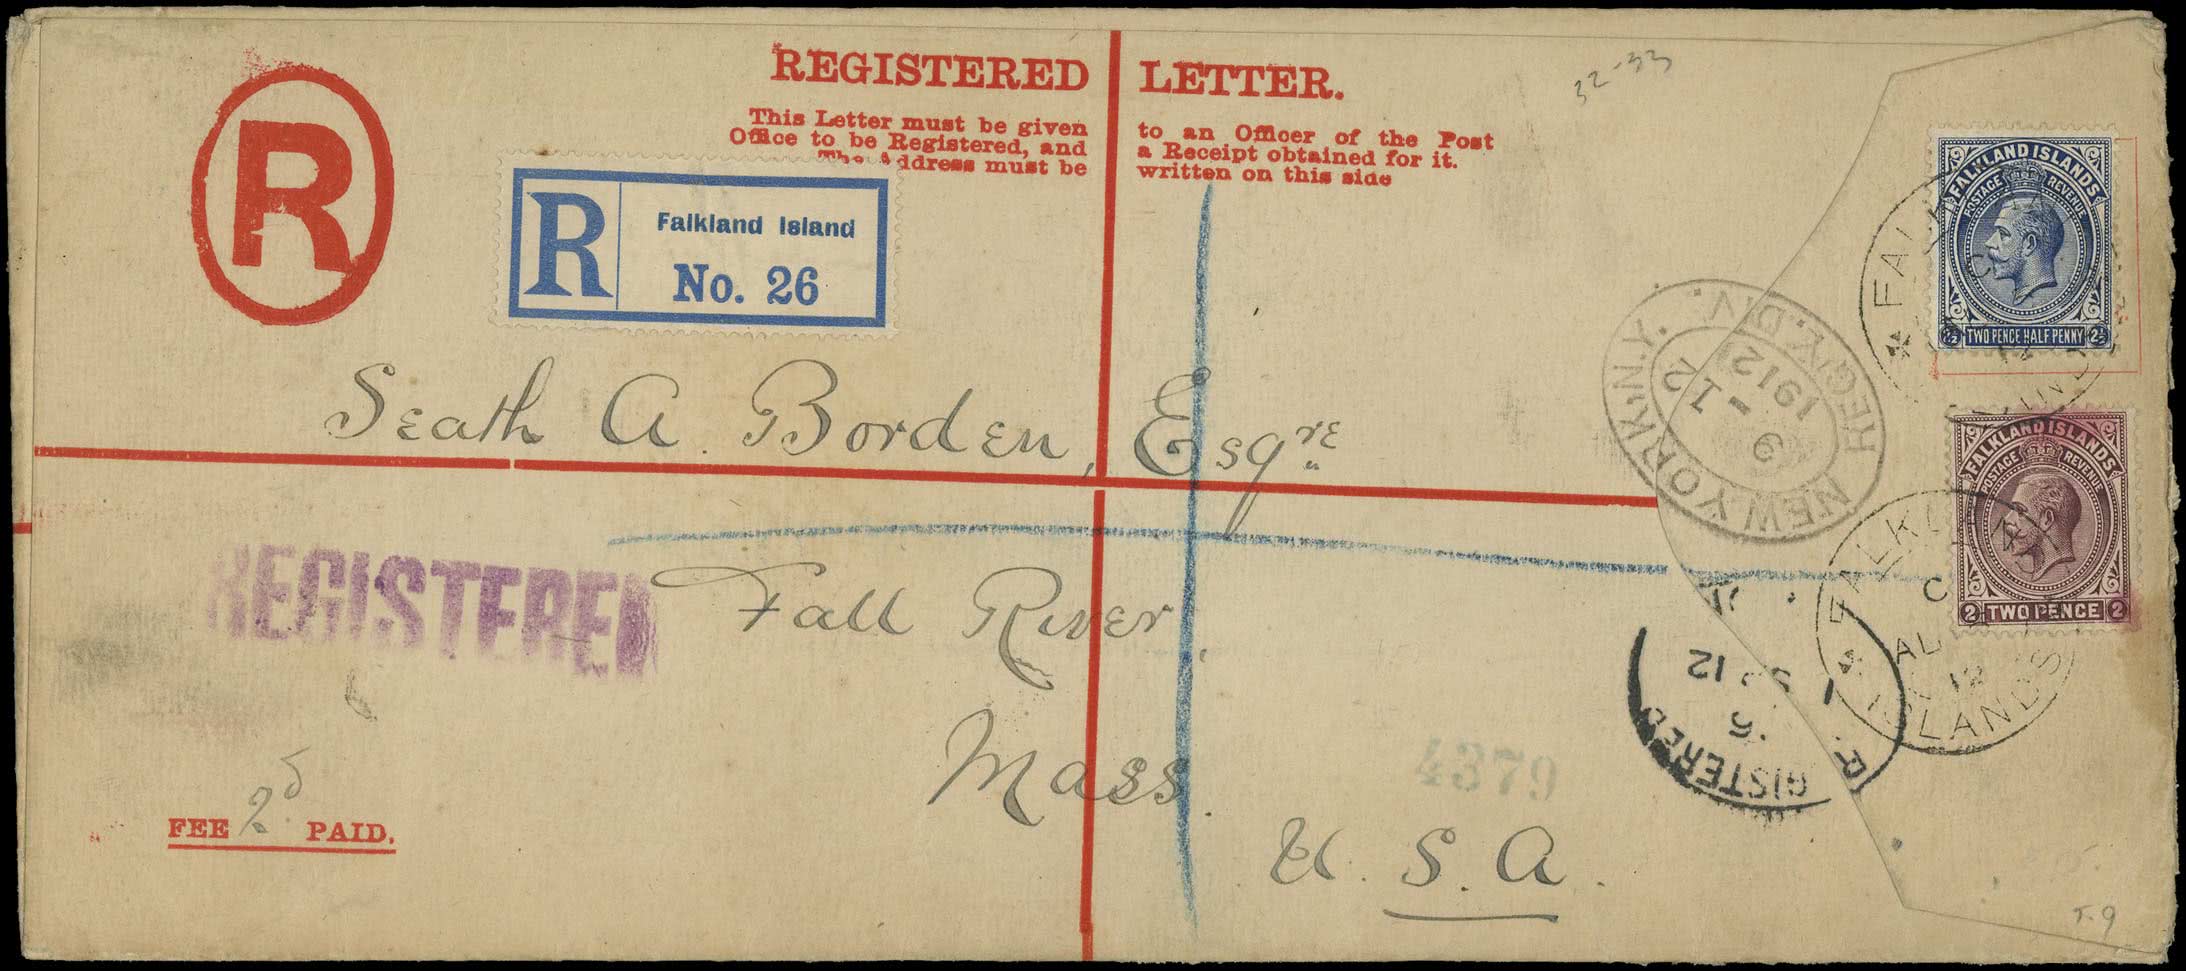 REGISTERED LETTER.
This Letter must be given to an Officer of the Post
Office to be Registered, and a Receipt obtained for it.
The Address must be written on this side
32-33
R
R
Falkland Island
No. 26
FALKLAND ISLANDS
POSTAGE REVENUE
2½ TWO PENCE HALF PENNY 2½
NEW YORK, N.Y. REG'Y. DIV.
9-12
1912
Seath A Borden, Esqre
FALKLAND ISLANDS
POSTAGE REVENUE
2 TWO PENCE 2
FALKLAND
C
AU
12
ISLANDS
REGISTERED
Fall River
Mass.
U. S. A.
GISTERED
6
12
4379
FEE 2d PAID.
T.9